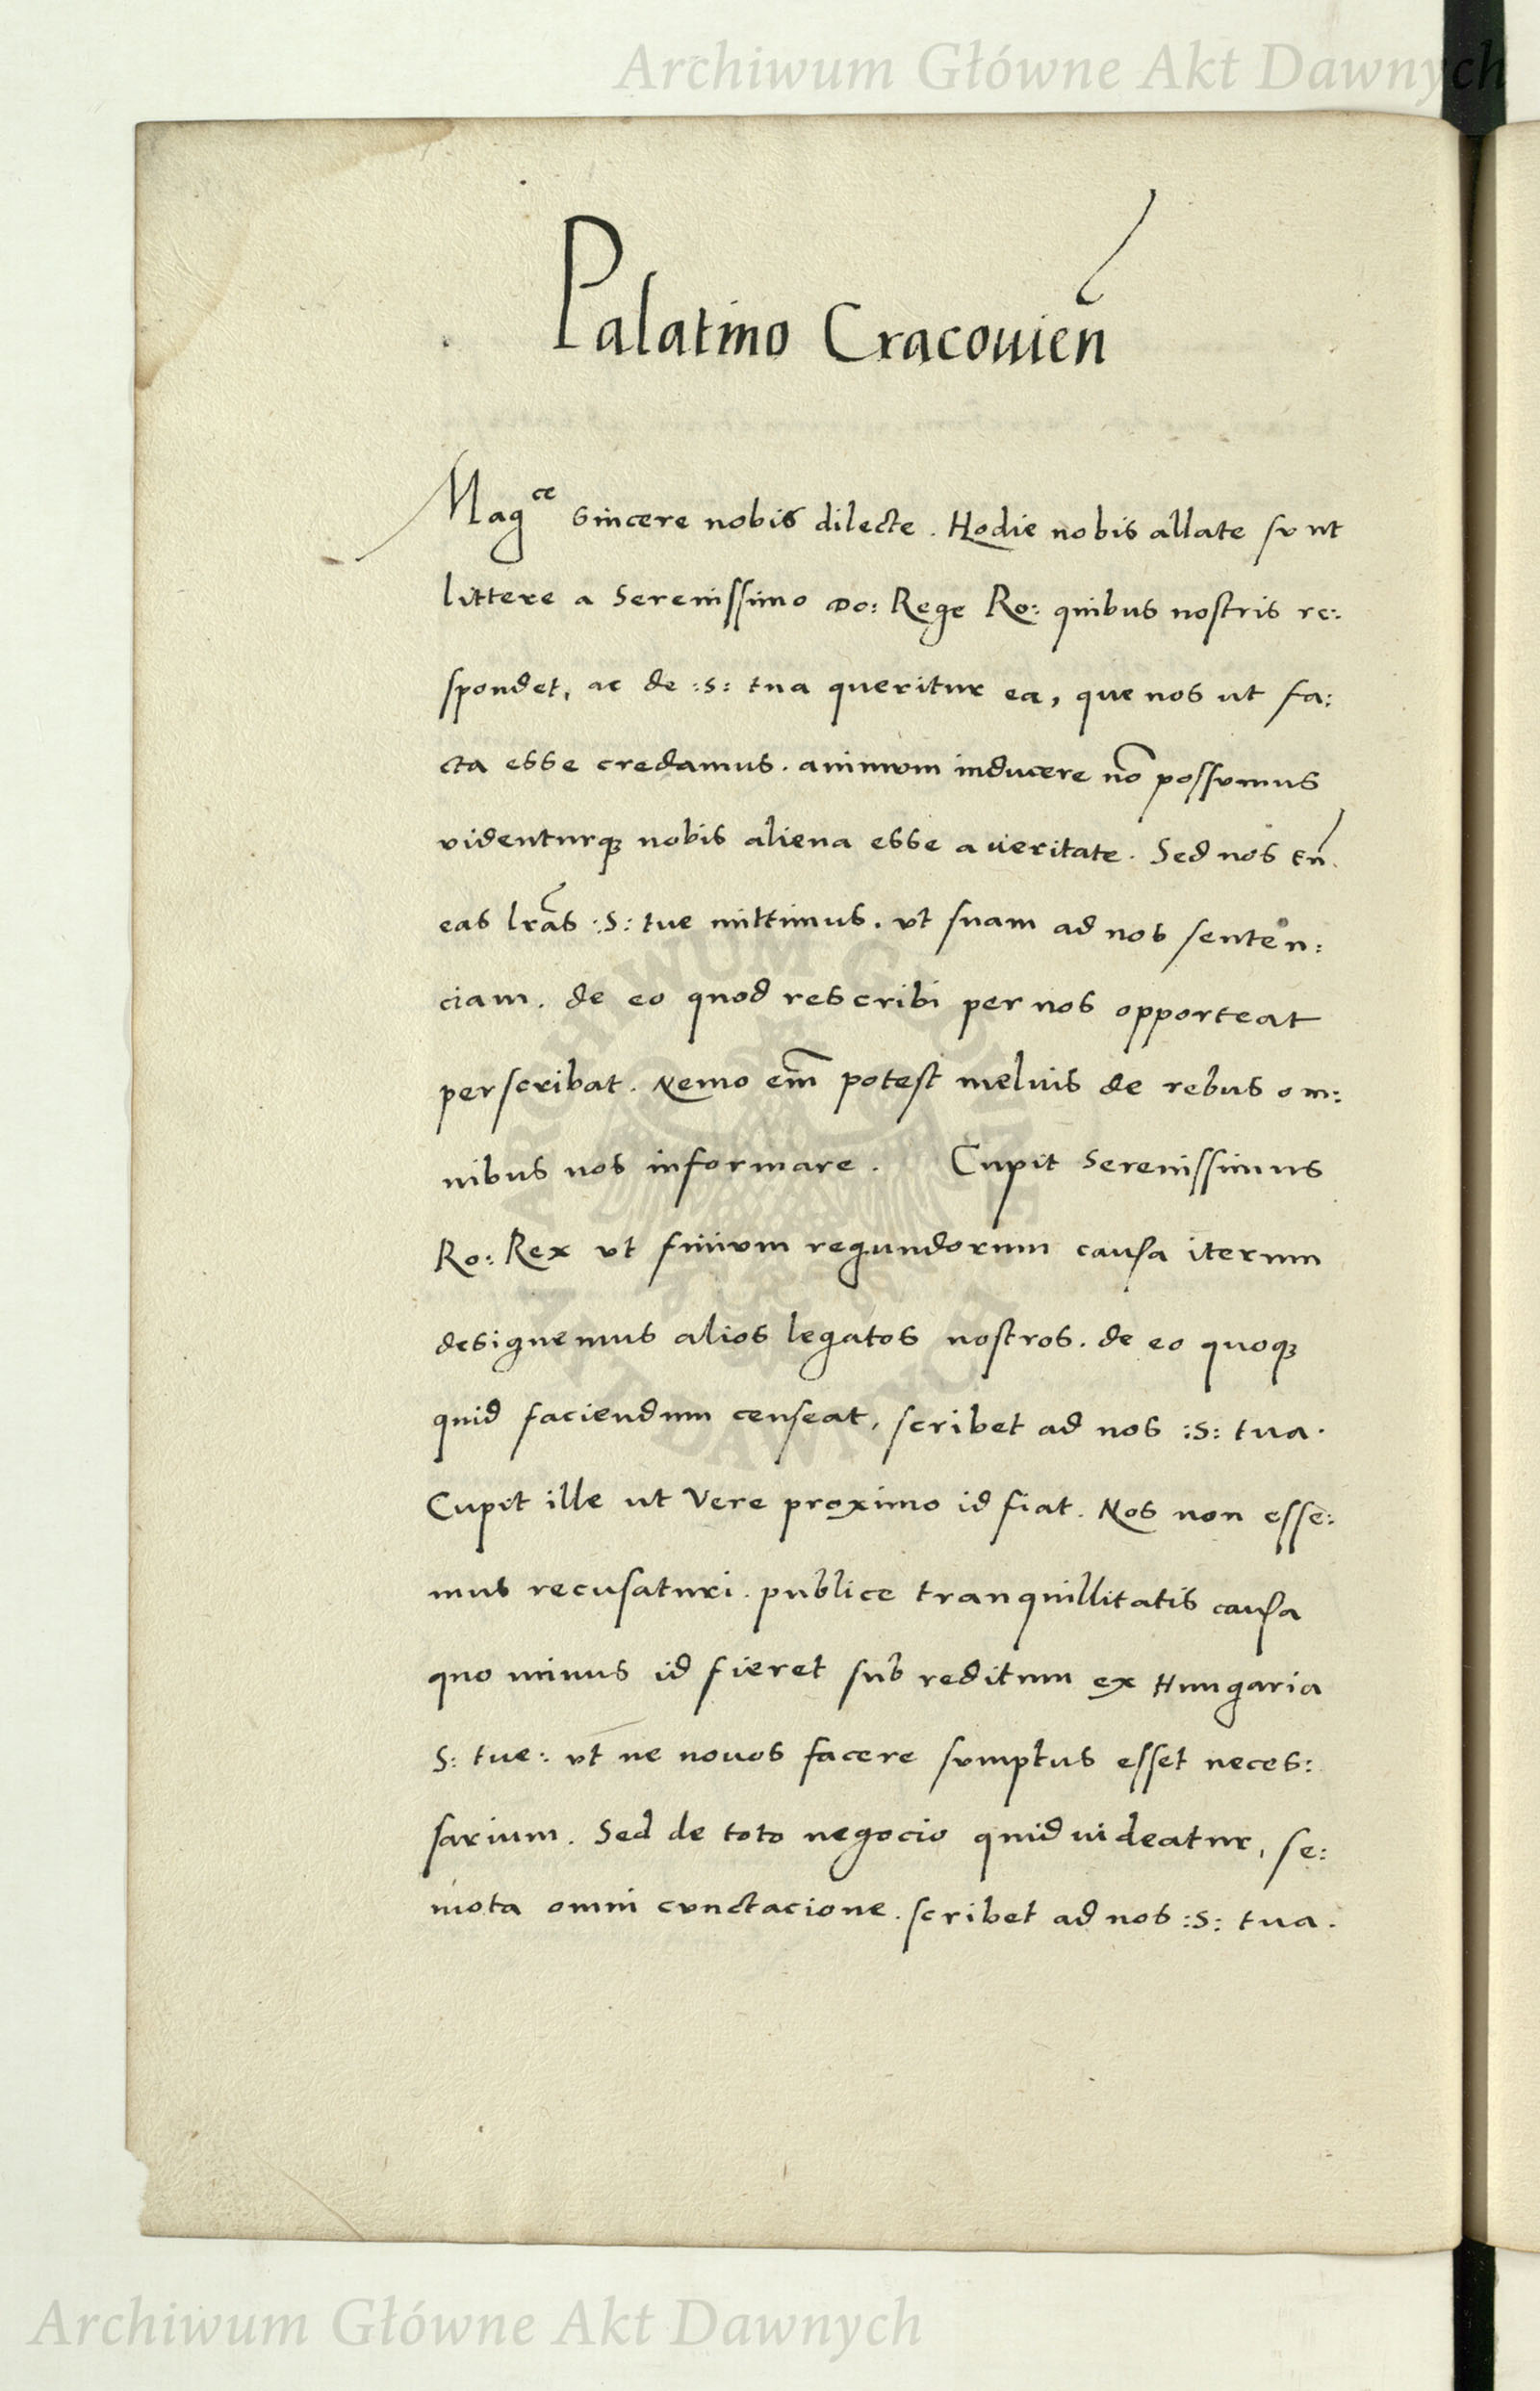 Archiwum Główne Akt Dawnych
Palatino Cracouien
Mag^ce Sincere nobis dilecte. Hodie nobis allate sunt
littere a Serenissimo Do: Rege Ro: quibus nostris re:
spondet, ac de :S: tua queritur ea, que nos ut fa:
cta esse credamus. animum inducere nō possumus
videnturq; nobis aliena esse a veritate. Sed nos tn̄.
eas lrās :S: tue mittimus. vt suam ad nos senten:
ciam. de eo quod rescribi per nos opporteat
perscribat. Nemo em̄ potest melius de rebus om:
nibus nos informare. Cupit Serenissimus
Ro: Rex vt finium regundorum causa iterum
designemus alios legatos nostros. de eo quoq;
quid faciendum censeat, scribet ad nos :S: tua.
Cupit ille ut Vere proximo id fiat. Nos non esse:
mus recusaturi. publice tranquillitatis causa
quo minus id fieret sub reditum ex Hungaria
S: tue: vt ne nouos facere sumptus esset neces:
sarium. Sed de toto negocio quid uideatur, se:
mota omni cunctacione. scribet ad nos :S: tua.
ARCHIWUM GŁÓWNE AKT DAWNYCH
Archiwum Główne Akt Dawnych